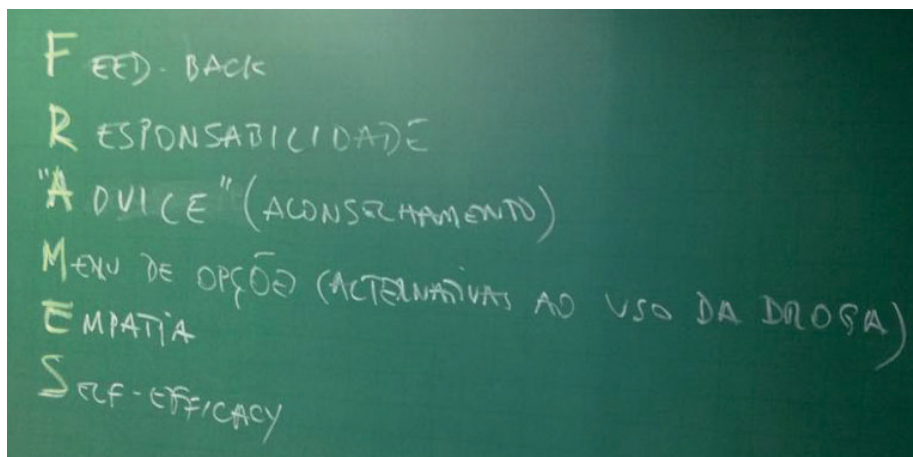 FEED-BACK
RESPONSABILIDADE
"ADVICE" (ACONSELHAMENTO)
MENU DE OPÇÕES (ALTERNATIVAS AO USO DA DROGA)
EMPATIA
SELF-EFFICACY